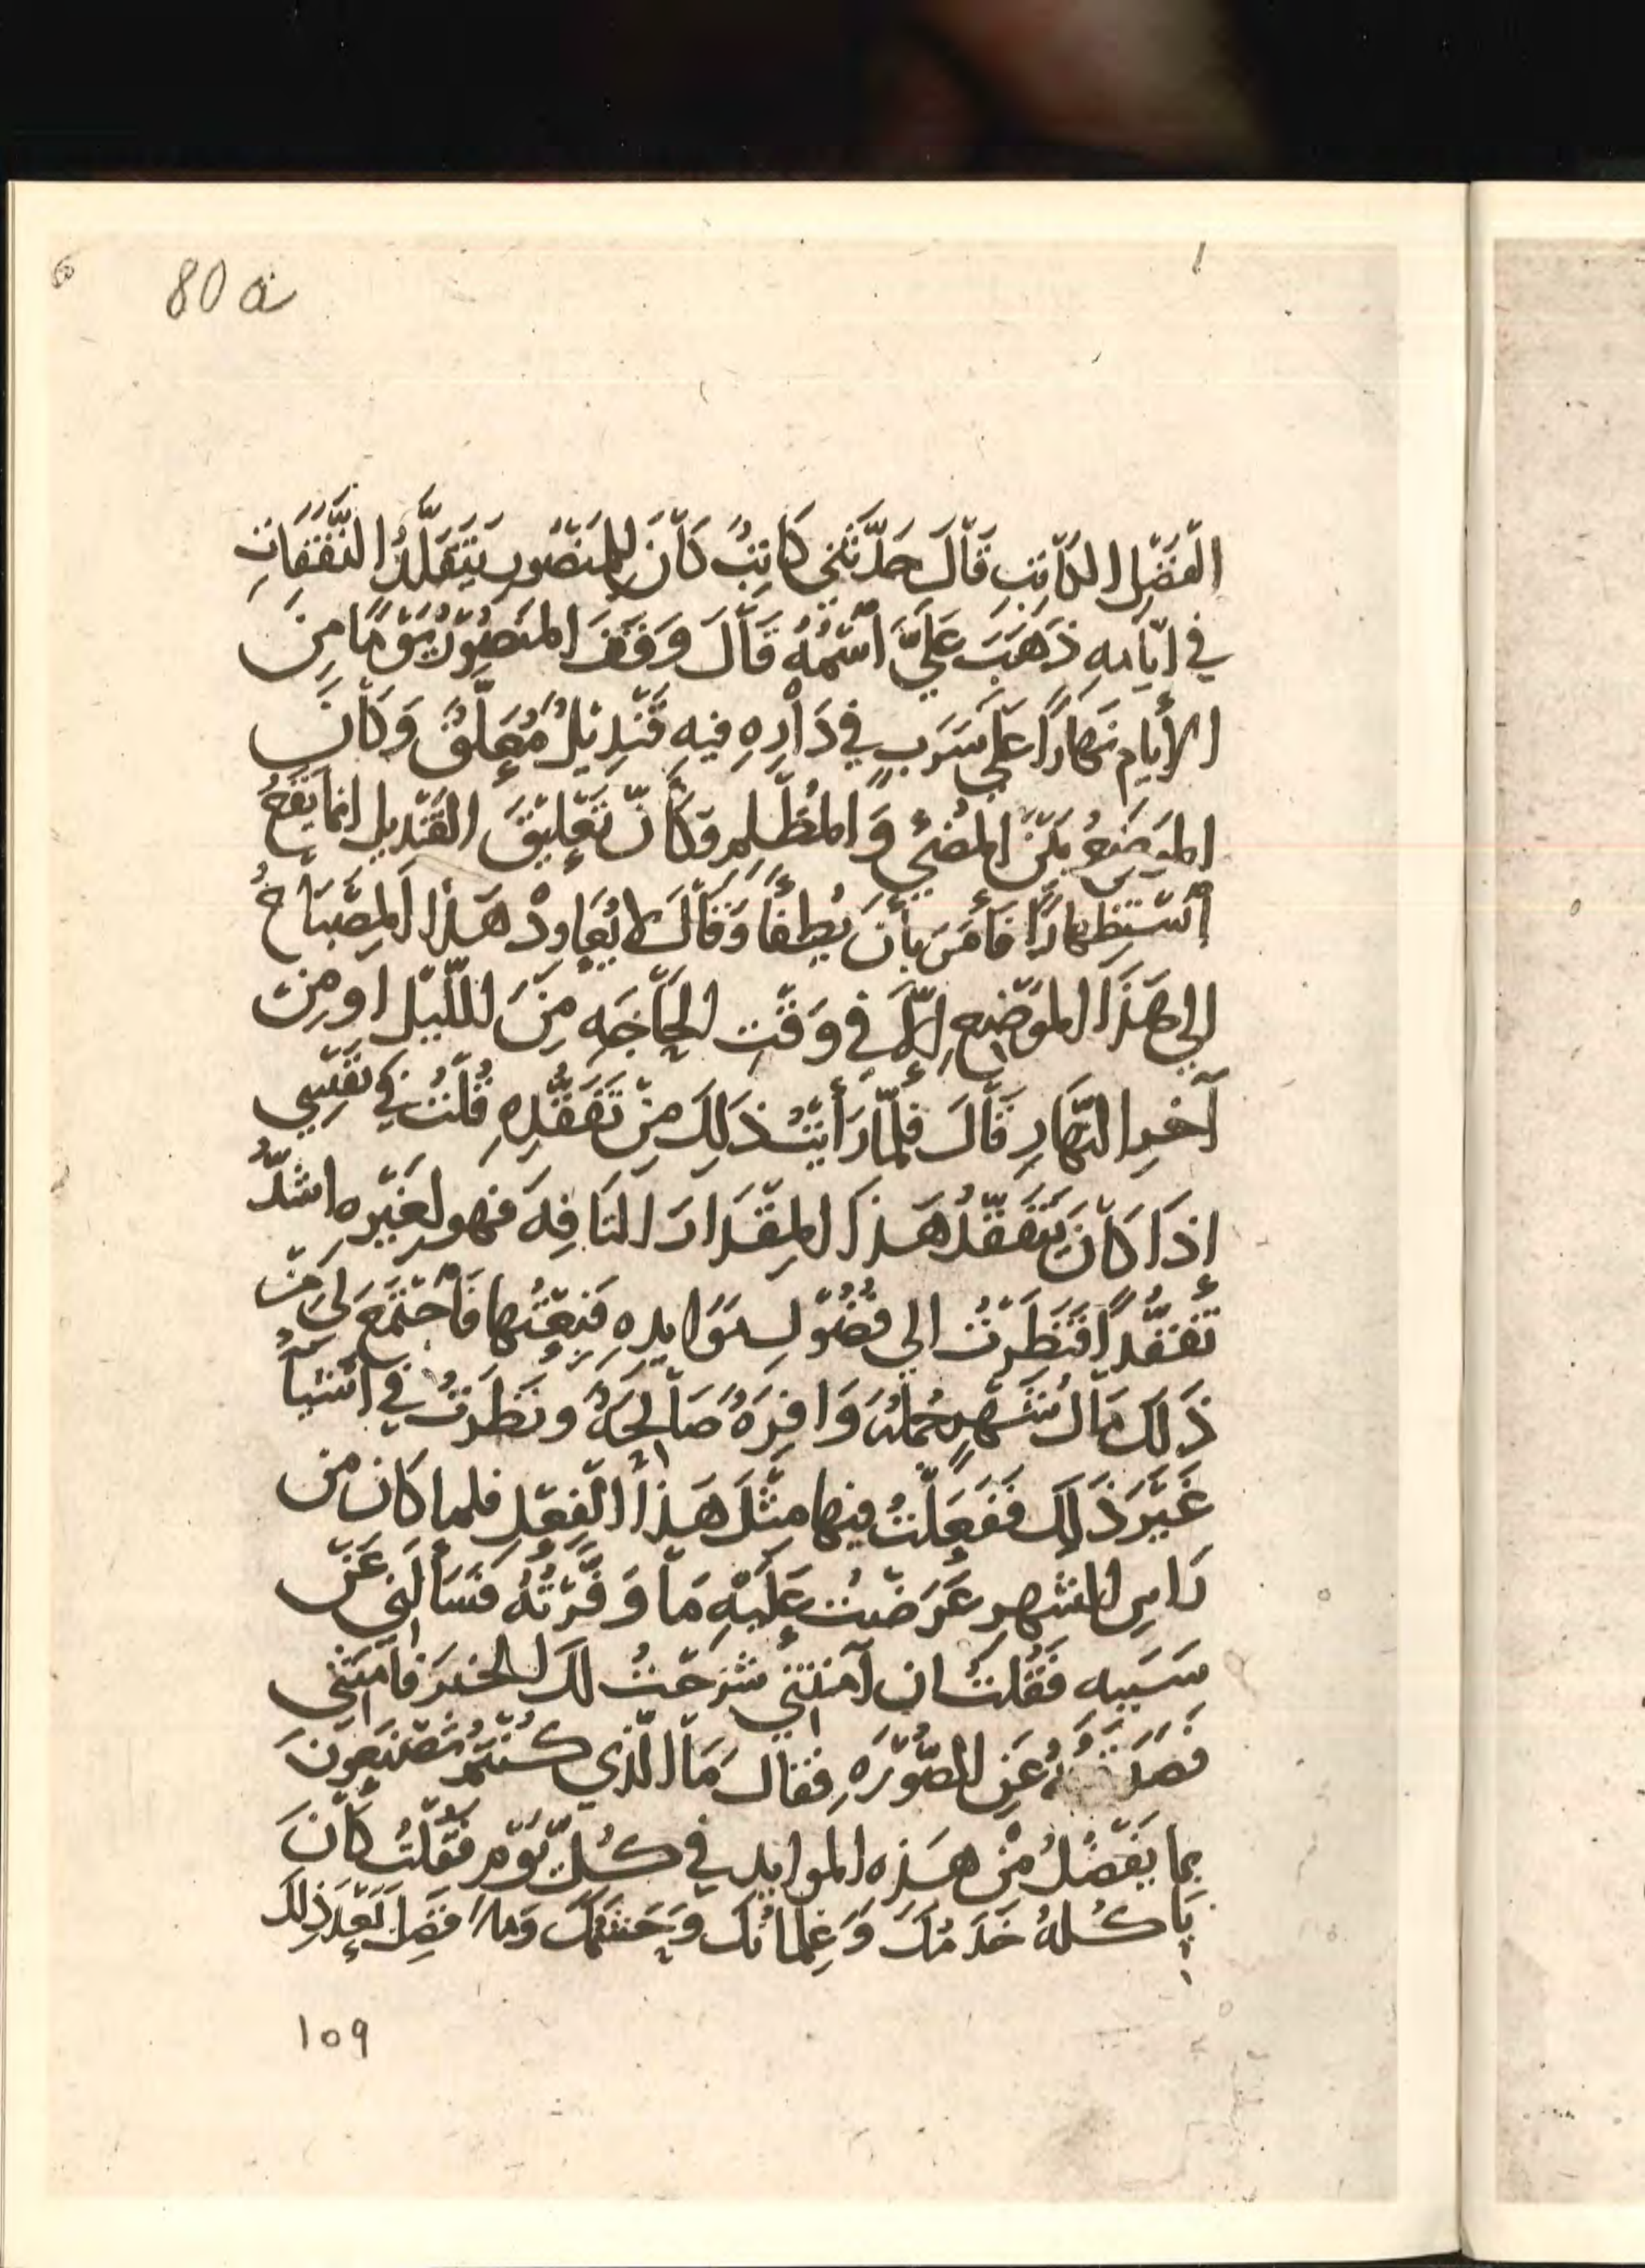 80 a
الفَضْلِ الكَاتِبِ قَالَ حَدَّثَنِي كَاتِبٌ كَانَ لِلمَنْصُورِ يَتَقَلَّدُ النَّفَقَاتِ
في ايّامِهِ ذَهَبَ عَلَيَّ اسْمُهُ قَالَ وَقَفَ المَنصُورُ يَوْمًا مِنَ
الأَيامِ نَهَارًا عَلَى سَرَبٍ في دَارِهِ فيهِ قَنْدِيْلٌ مُعَلَّقٌ وَكَانَ
المَوضِعُ بَيْنَ المُضِيْ وَالمُظْلِمِ وَكَأنَّ تَعْلِيْقَ القَنْدِيلِ انمَا يَقَعُ
اسْتِظْهَارًا فَأَمَرَ بأَنَ يُطْفَأَ وَقَالَ لا يُعَاودْ هَذَا المِصْبَاحُ
الى هَذَا المَوْضِعِ إِلَّا في وَقْتِ الحَاجَهِ مِنَ اللّيْلِ او مِن
آخرِ النَّهَارِ قَالَ فَلَمّا رَأَيْتُ ذَلِكَ مِنْ تَفَقُّدِهِ قُلْتُ في نَفْسِي
إذَا كَانَ يَتَفَقَّدُ هَذَا المِقْدَارَ التَافِهَ فهو لِغَيْرِهِ اشَدُّ
تَفَقُّدًا فَنَظَرْتُ الي فُضُوْلِ مَوَايدِهِ فَبِعْتُها فَاجْتَمَعَ لي مِنْ
ذَلك مَال شَهْرٍ جُملَهً وَافِرَهً صَالِحَهً ونَظَرْتُ في اشْيَاَ
غَيْرَ ذَلِكَ فَفَعَلْتُ فيها مِثْلَ هَذَا الفِعْلِ فلما كان من
رَاسِ الشهرِ عَرَضْتُ عَلَيْهِ مَا وَفَّرْتُهُ فَسَأَلَنِي عَنْ
سَبَبِهِ فَقُلتُ ان آمَنْتَنِي شَرَحْتُ لكَ الخَبَرَ فآمَنَنِي
عَنِ الصُّوْرَهِ فقال مَا الَّذي كُنْتُمْ تَصْنَعونَ
بما يَفْضُلُ مِنْ هَذِهِ الموايد في كُلِّ يَوْمٍ فَقُلْتُ كَانَ
يَاكُلهُ خَدَمُكَ وَغِلمَانُكَ وَحَشَمُكَ وَمَا فَضَلَ بَعْدَ ذَلِكَ
١٥٩